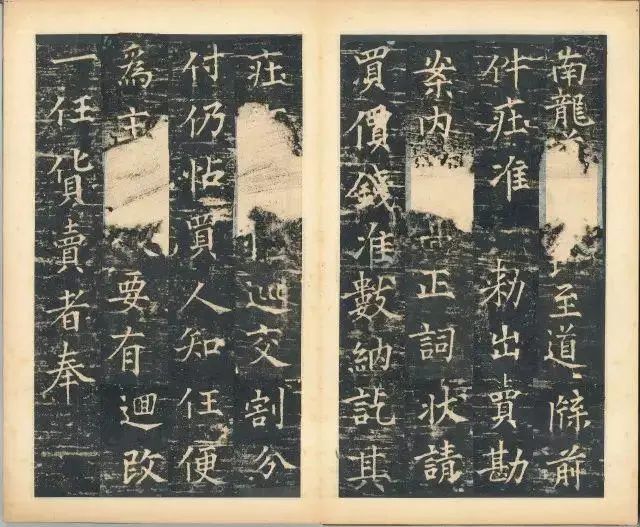 南龍至道牒前
件庄准勅出賣勘
案内正詞状請
買價錢准數納訖其
庄巡交割分
付仍帖買人知任便
爲主要有迴改
一任貨賣者奉